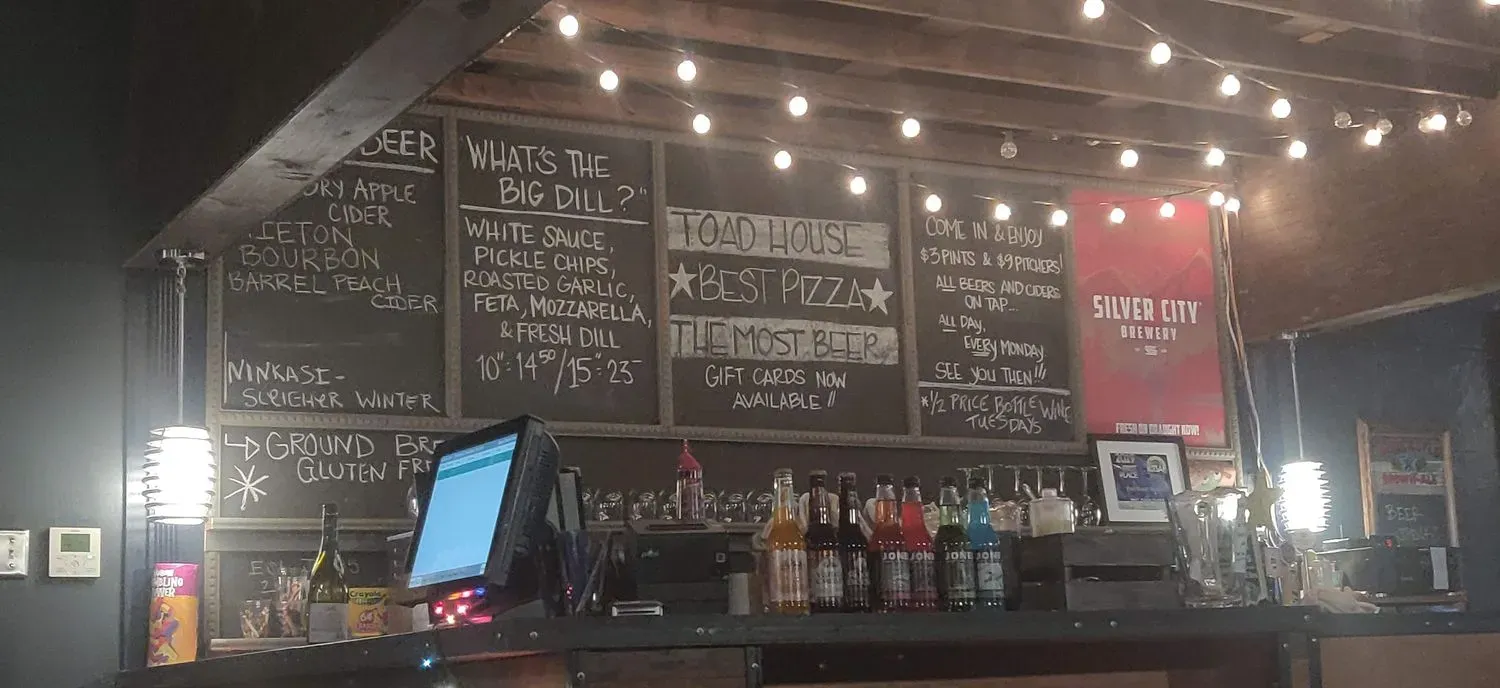 BEER
DRY APPLE
CIDER
BOURBON
BARREL PEACH
CIDER
NINKASI-
SLEIGHER WINTER
GROUND
GLUTEN
WHAT'S THE
BIG DILL?"
WHITE SAUCE,
PICKLE CHIPS,
ROASTED GARLIC,
FETA, MOZZARELLA,
& FRESH DILL
10": 14⁵⁰/15": 23⁻
TOAD HOUSE
★BEST PIZZA★
THE MOST BEER
GIFT CARDS NOW
AVAILABLE!!
COME IN & ENJOY
$3 PINTS & $9 PITCHERS!
ALL BEERS AND CIDERS
ON TAP...
ALL DAY,
EVERY MONDAY
SEE YOU THEN!!!
*1/2 PRICE BOTTLE WINE
TUESDAYS
SILVER CITY
BREWERY
FRESH ON DRAUGHT NOW!
Crayola
JONE
JONE
JONE
JONE
PLACE
BEER